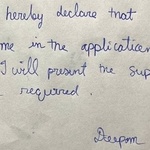 hereby declare that
me in the application
I will present the sup
required.
Deepam